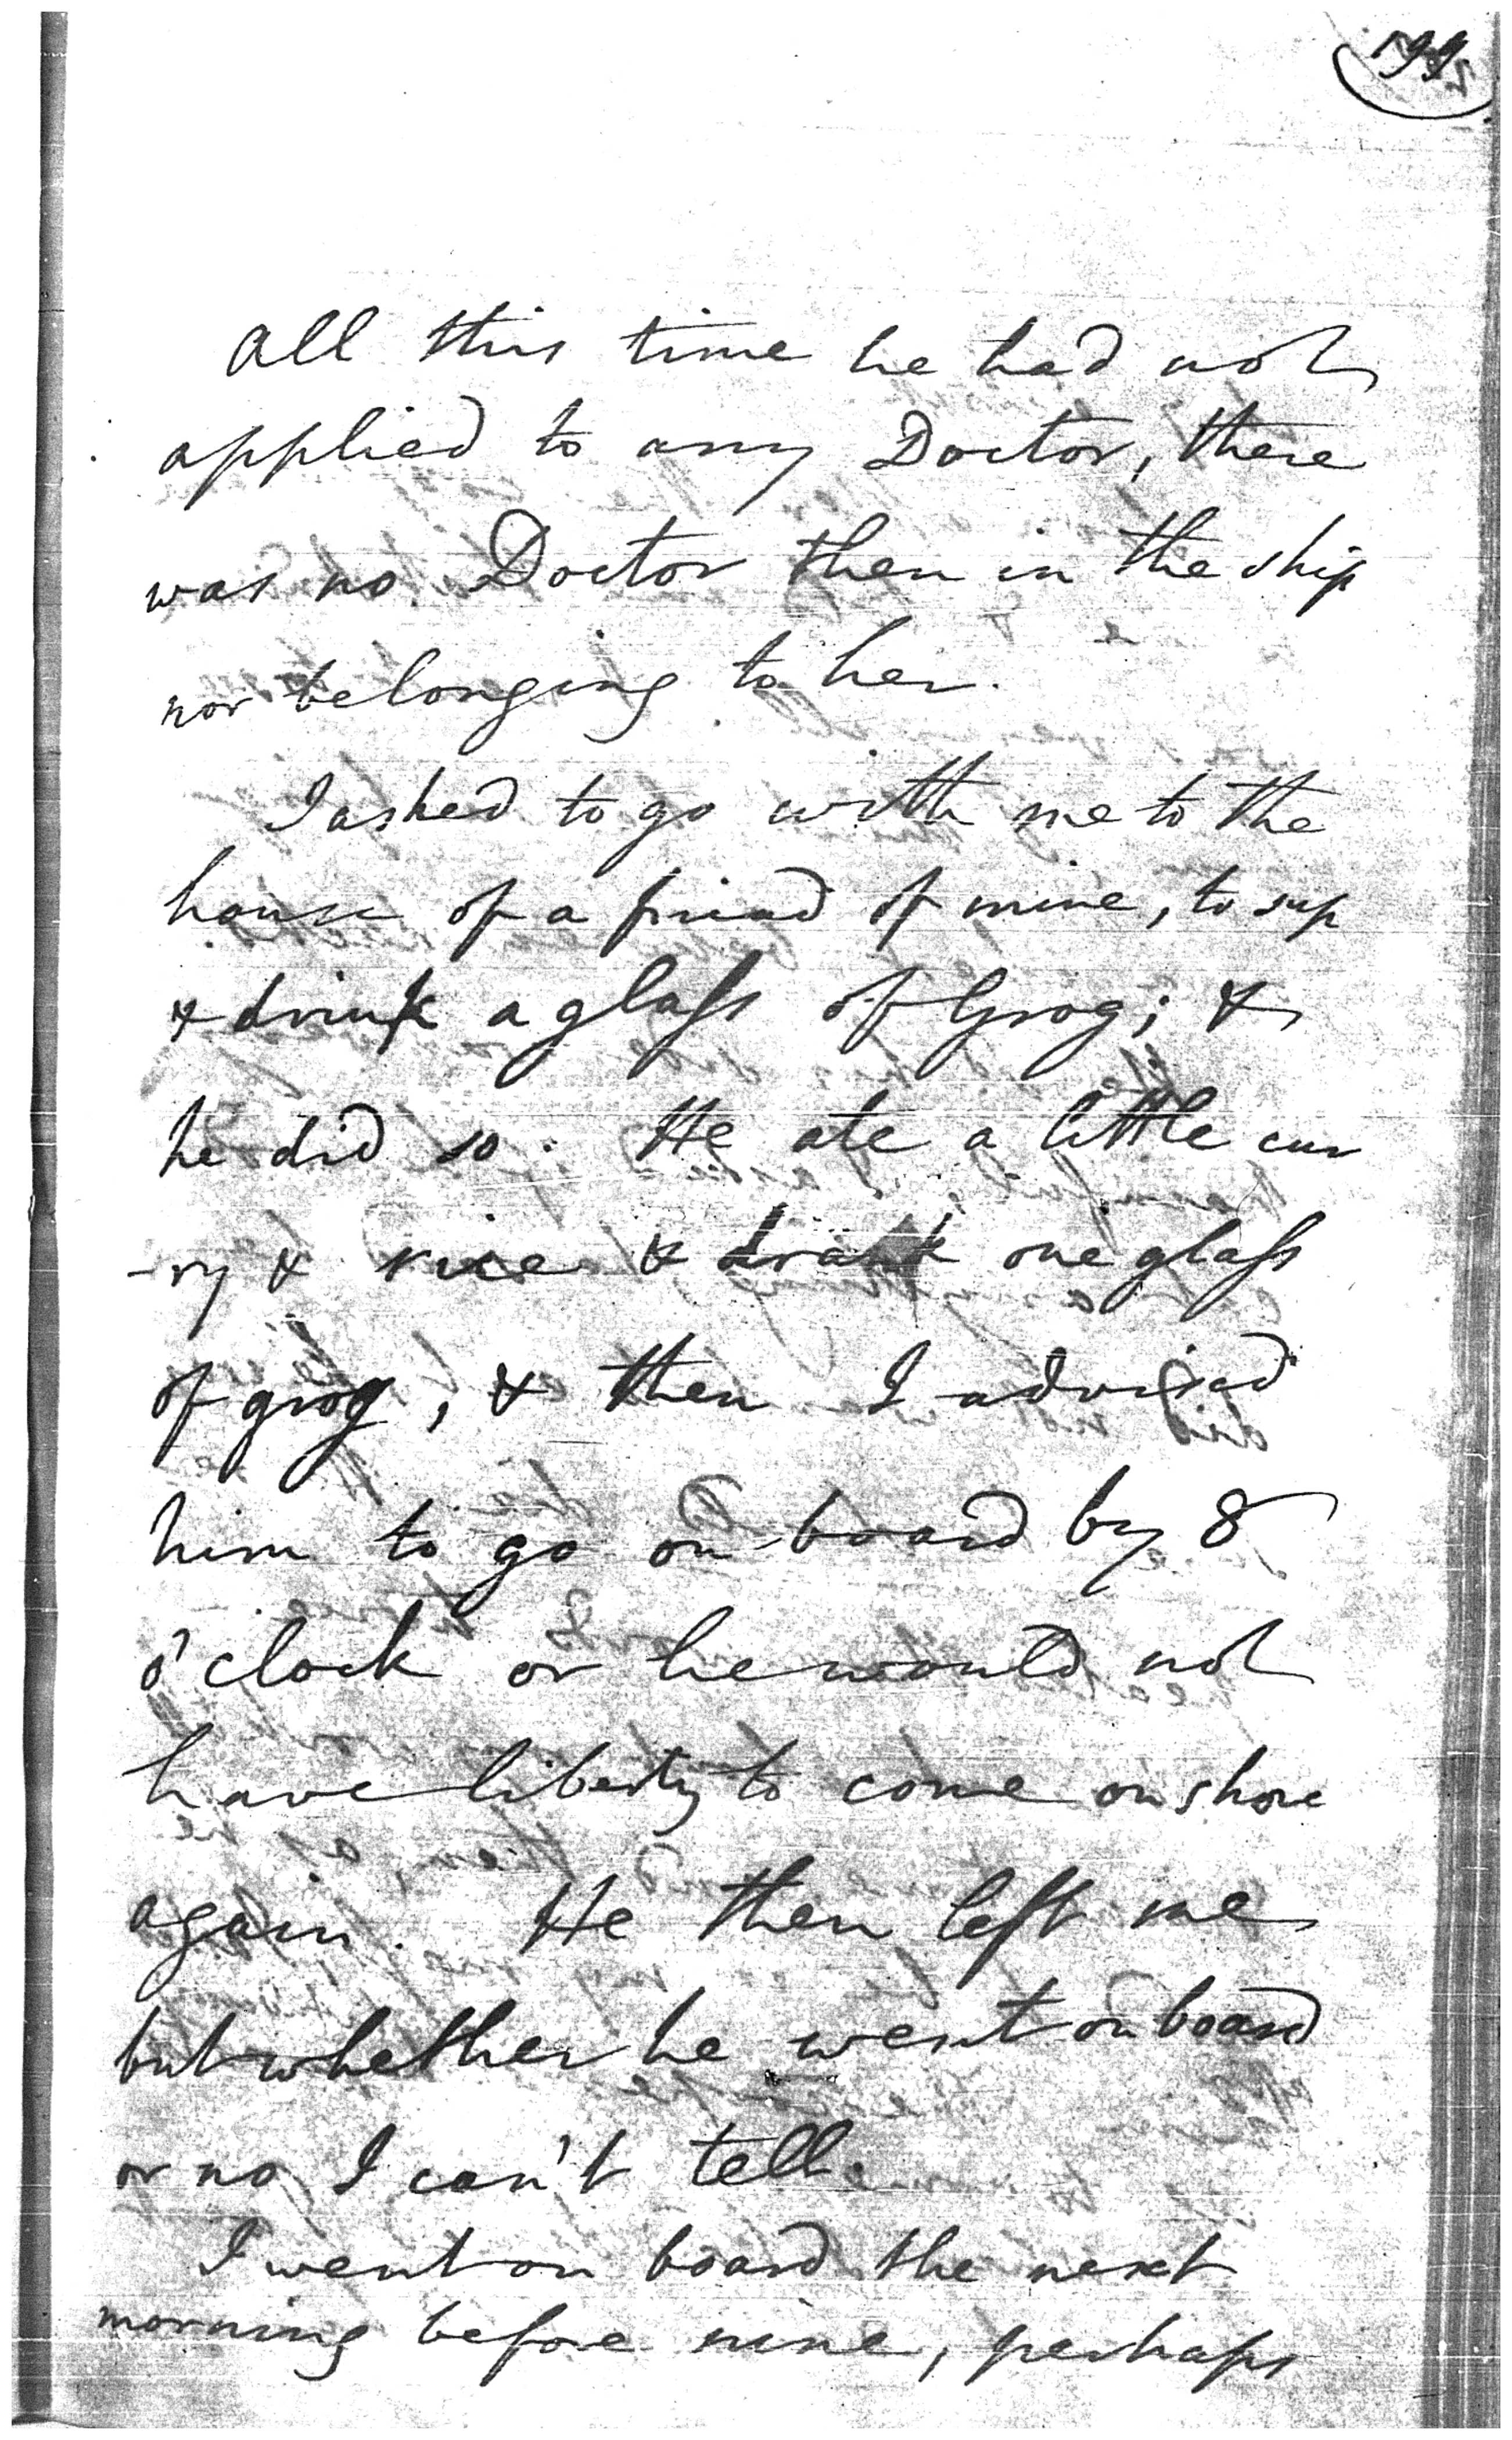 199
All this time he had not
applied to any Doctor, there
was no Doctor then in the ship
nor belonging to her.
I asked to go with me to the
house of a friend of mine, to sup
& drink a glass of Grog; &
he did so. He ate a little cur
-ry & rice & drank one glass
of grog, & then I advised
him to go on board by 8
o'clock or he would not
have liberty to come on shore
again. He then left me
but whether he went on board
or no I can't tell.
I went on board the next
morning before nine, perhaps